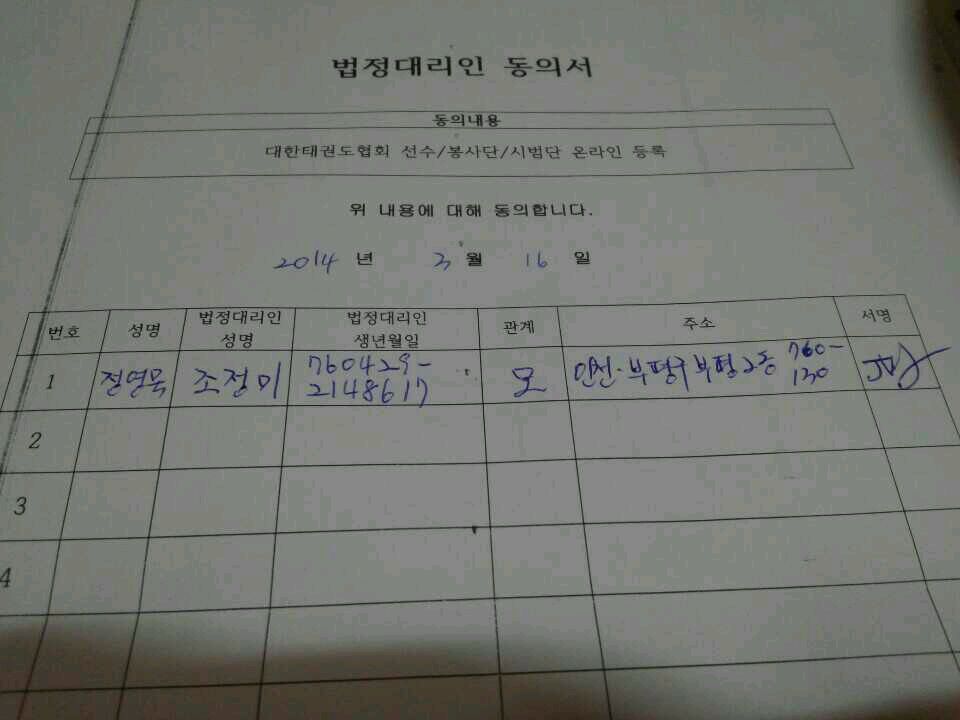 법정대리인 동의서
동의내용
대한태권도협회 선수/봉사단/시범단 온라인 등록
위 내용에 대해 동의합니다.
2014 년 3 월 16 일
번호 성명 법정대리인 성명 법정대리인 생년월일 관계 주소 서명
1 조정미 760429-2148617 모 인천. 부평구 부평2동 760-130
2
3
4